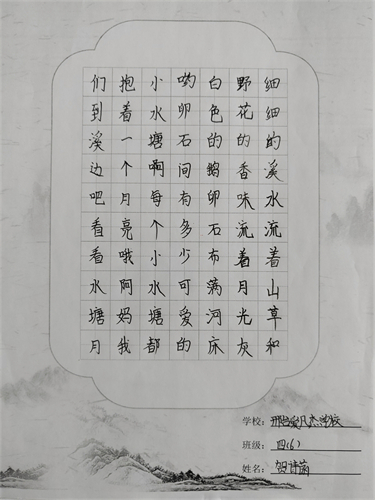 细细的溪水流着山草和
野花的香味流着月光灰
白色的鹅卵石布满河床
哟卵石间有多少可爱的
小水塘啊每个小水塘都
抱着一个月亮哦阿妈我
们到溪边吧看看水塘月
学校：邢台 学校
班级：四(6)
姓名：贺诗